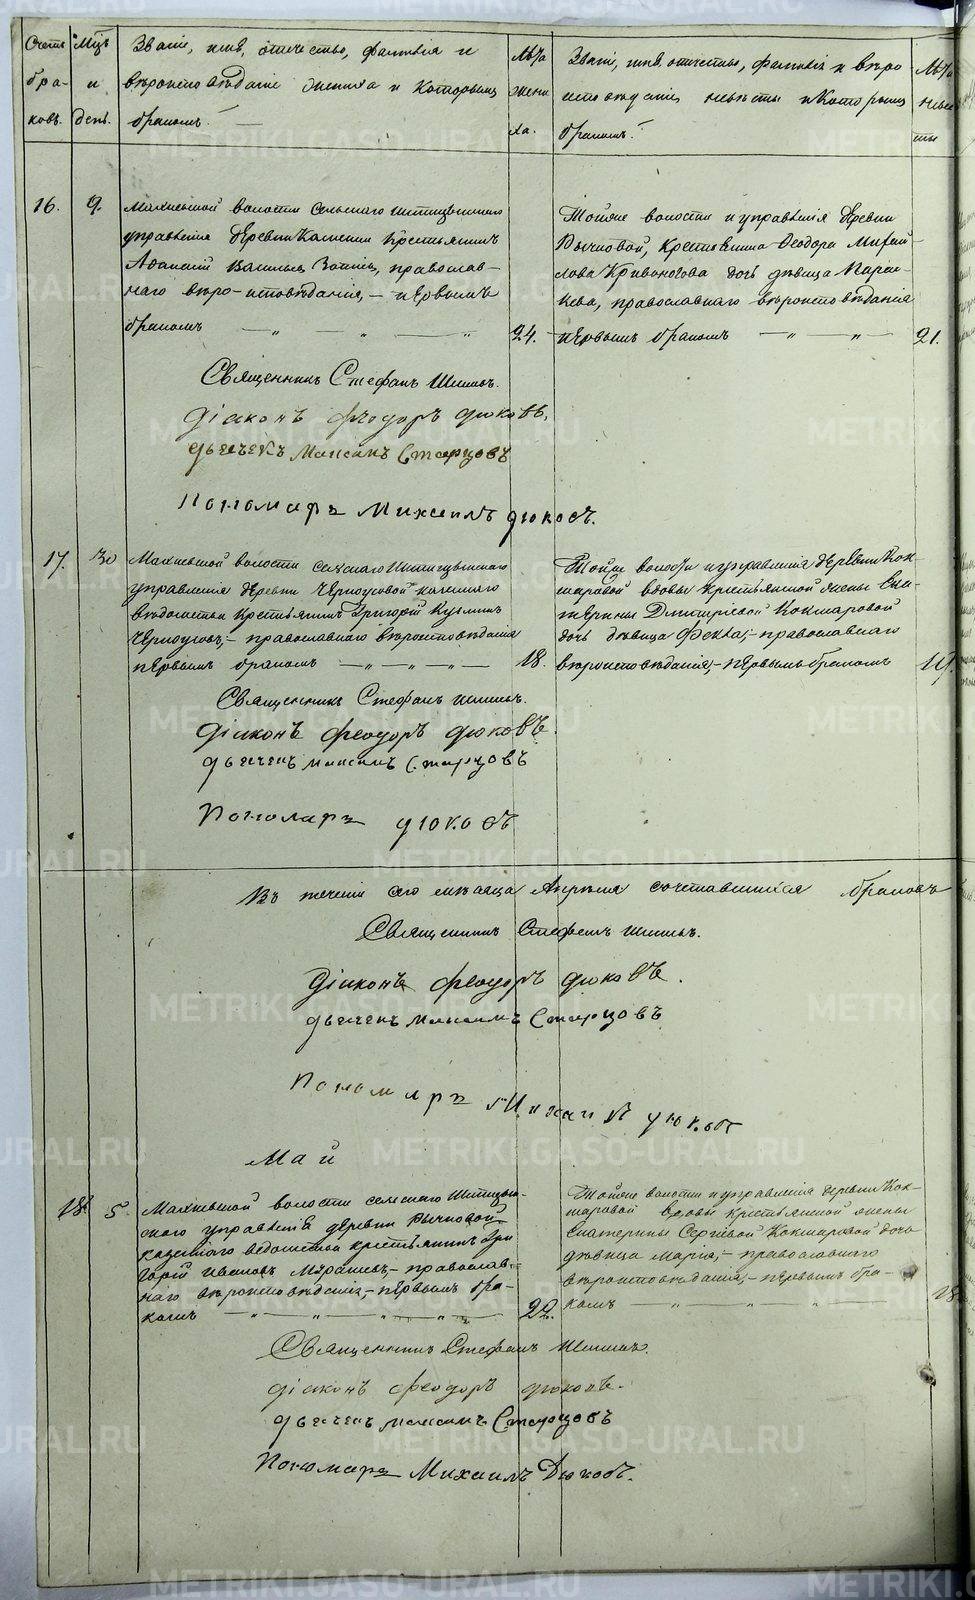 Счетъ бра- ковъ.
Мѣцъ и день.
Званіе, имя, отечество, фамилія и
вѣроисповѣданіе жениха и которымъ
бракомъ.
Лѣта жени ха.
Званіе, имя, отечество, фамилія и вѣро
исповѣданіе невѣсты и которымъ
бракомъ.
Лѣта невѣ сты
16.
9.
волости сельскаго
управленія деревни крестьянинъ
Аѳанасій Васильевъ православ-
наго вѣро-исповѣданія, – первымъ
бракомъ
24.
Тойже волости и управленія деревни
Бычковой, крестьянина Ѳеодора
Кривоногова дочь дѣвица Парас-
кева, православнаго вѣроисповѣданія
первымъ бракомъ
21.
Священникъ Стефанъ
Діаконъ Феодоръ Дюковъ.
Дьячекъ Максимъ Старцовъ
Пономарь Михаилъ Дюковъ.
17.
30
волости сельскаго
управленія деревни Черноусовой казеннаго
вѣдомства крестьянинъ Григорій Кузминъ
Черноусовъ, – православнаго вѣроисповѣданія
первымъ бракомъ
18.
Тойже волости и управленія деревни Кок-
шаровой вдовы крестьянской жены Ека-
терины Димитріевой Кокшаровой
дочь дѣвица Фекла, – православнаго
вѣроисповѣданія, – первымъ бракомъ
19.
Священникъ Стефанъ
Діаконъ Феодоръ Дюковъ.
Дьячекъ Максимъ Старцовъ
Пономарь Дюковъ
Въ теченіи сего мѣсяца Апрѣля сочетавшихся браковъ
Священникъ Стефанъ
Діаконъ Феодоръ Дюковъ.
Дьячекъ Максимъ Старцовъ
Пономарь Михаилъ Дюковъ
Май
18.
5.
волости сельскаго
скаго управленія деревни Бычковой
казеннаго вѣдомства крестьянинъ Гри
горій Ивановъ православ-
наго вѣроисповѣданія, – первымъ бра-
комъ
22.
Тойже волости и управленія деревни Кок-
шаровой вдовы крестьянской жены
Екатерины Сергіевой Кокшаровой дочь
дѣвица Марія, – православнаго
вѣроисповѣданія, – первымъ бра-
комъ
18
Священникъ Стефанъ
Діаконъ Феодоръ Дюковъ.
Дьячекъ Максимъ Старцовъ
Пономарь Михаилъ Дюковъ.
METRIKI.GASO-URAL.RU